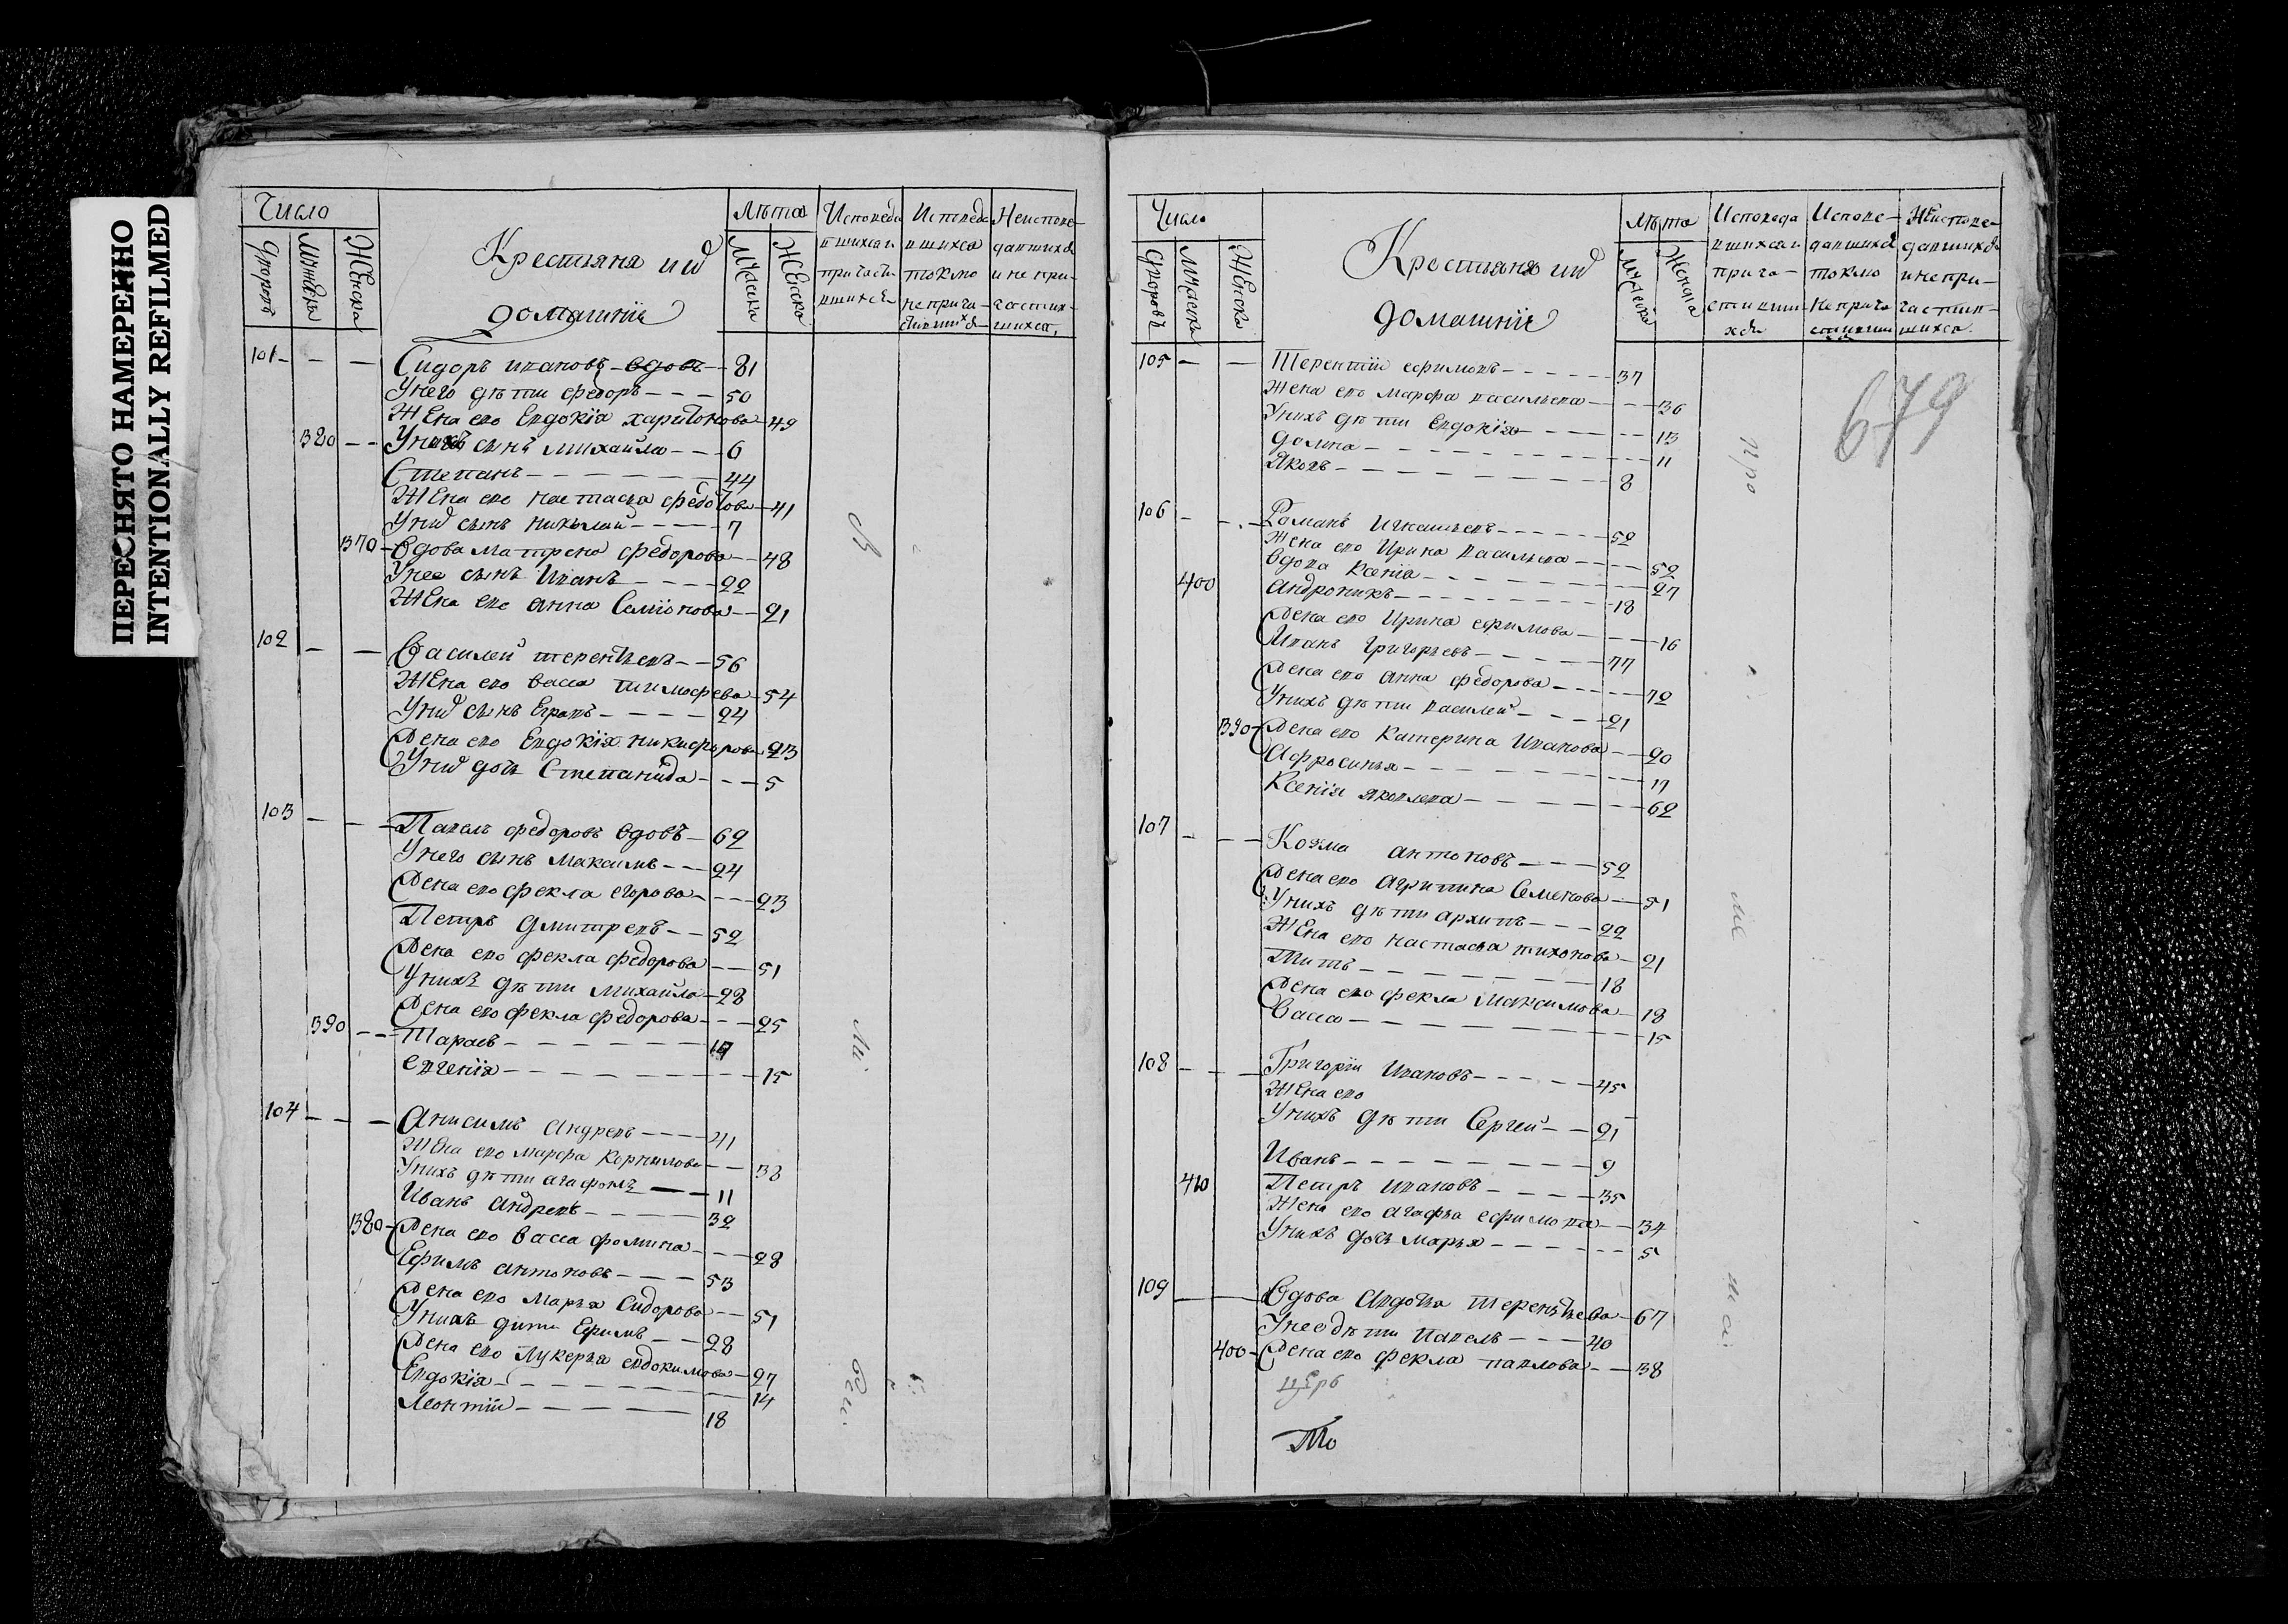 ПЕРЕСНЯТО НАМЕРЕННО
INTENTIONALLY REFILMED
Число
Дворовъ
Мужеска
Женска
Крестьяня ихъ
домашнiе
Лѣта
Мужеска
Женска
101 - - - Сидоръ ивановъ - вдовъ - 81
Унего дѣти федоръ - - - 50
Жена его Евдокiя харитонова - 49
320 - - Унихъ сынъ михайла - - - 6
Степанъ - - - - - 44
Жена его настасья федотова - 41
Унихъ сынъ николай - - - - 7
370 - Вдова матрена федорова - - 48
Унее сынъ Иванъ - - - - 22
Жена его анна Семiонова - - 21
102 - - Василей терентьевъ - - 56
Жена его васса тимофева - 54
Унихъ сынъ Егравъ - - - - 24
Жена его Евдокiя никифорова - 23
Унихъ дочь Степанида - - - 5
103 - - - Павелъ федоровъ вдовъ - 62
Унего сынъ максимъ - - 24
Жена его фекла егорова - - - 23
Петръ дмитревъ - - 52
Жена его фекла федорова - - 51
Унихъ дѣти михайла - 28
Жена его фекла федорова - - - 25
390 - - Тарасъ - - - - - - 17
евгенiя - - - - - - - - 15
104 - - - Анисимъ андревъ - - - - 41
Жена его марфа корнилова - - 38
Унихъ дѣти агафонъ - - - 11
Иванъ андревъ - - - - - 32
380 - Жена его васса фомина - - - 28
Ефимъ антоновъ - - - - 53
Жена его марья Сидорова - - 51
Унихъ дѣти Ефимъ - - 28
Жена его лукерья евдокимова - 27
Евдокiя - - - - - - - 14
леонтiй - - - - - - 18
679
Число
Дворовъ
Мужеска
Женска
Крестьяня ихъ
домашнiе
Лѣта
Мужеска
Женска
105 - - Терентiй ефимовъ - - - - - - 37
Жена его марфа васильева - - - - 36
Унихъ дѣти евдокiя - - - - - - 13
домна - - - - - - - - - 11
Яковъ - - - - - - - 8
106 - - - Романъ Игнатьевъ - - - - - - 52
Жена его Ирина васильева - - - - - 52
вдова Ксенiя - - - - - - - - 27
400 андроникъ - - - - - - - - 18
Жена его Ирина ефимова - - - - 16
Иванъ григорьевъ - - - - - - 77
Жена его анна федорова - - - - - 72
Унихъ дѣти василей - - - - 21
390 - Жена его катерина Иванова - - 20
Афросинья - - - - - - - - - 17
Ксенiя яковлева - - - - - - - 62
107 - - - Козма антоновъ - - - - 52
Жена его агрипина Семенова - - 51
Унихъ дѣти архипъ - - - - 22
Жена его настасья тихонова - 21
Титъ - - - - - - - - 18
Жена его фекла максимова - 18
Васса - - - - - - - - - 15
108 - - - Григорiй Ивановъ - - - - - 45
Жена его
Унихъ дѣти Сергей - - 21
Иванъ - - - - - - - - 9
410 Петръ ивановъ - - - - - 35
Жена его агафья ефимова - - 34
Унихъ дочь марья - - - - - - 5
109 - - Вдова авдотья терентьева - 67
Унее дѣти павелъ - - - 40
400 - Жена его фекла павлова - - 38
То